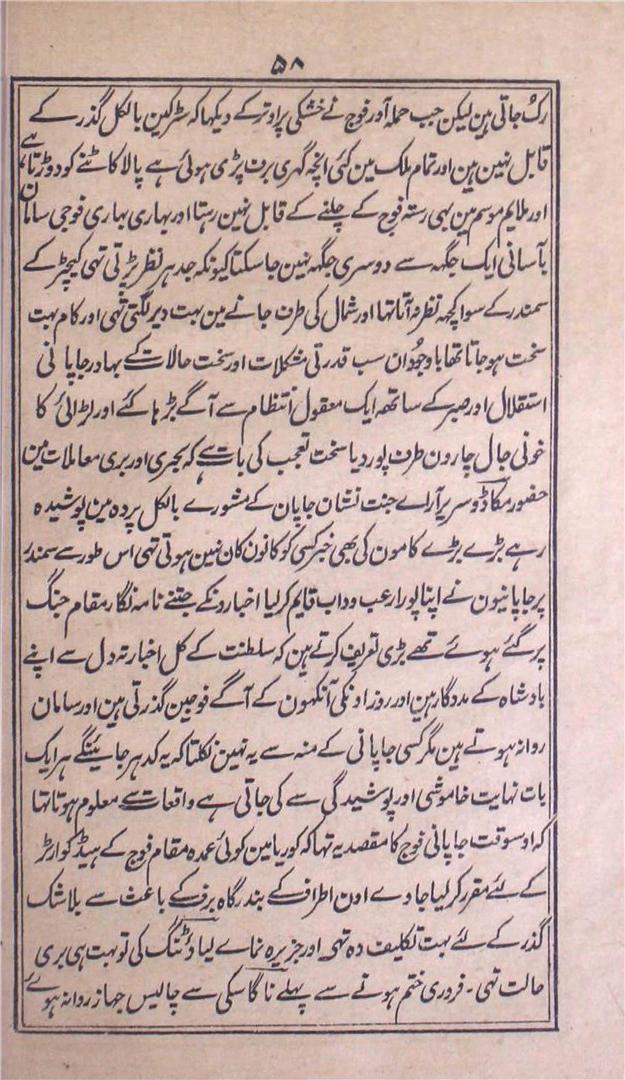 ۵۸
رک جاتی ہین لیکن جب حملہ آور فوج نے خشکی پر اوتر کے دیکہا کہ سڑکین بالکل گذر کے
قابل نہین ہین اور تمام ملک مین کئی انچہ گہری برف پڑی ہوئی ہے پالا کاٹنے کو دوڑتا ہے
اور ملایم موسم مین بہی رستہ فوج کے چلنے کے قابل نہین رہتا اور بہاری بہاری فوجی سامان
بآسانی ایک جگہہ سے دوسری جگہہ نہین جا سکتا کیونکہ جدہر نظر پڑتی تہی کیچڑ کے
سمندر کے سوا کچہہ نظر نہ آتا تہا اور شمال کی طرف جانے مین بہت دیر لگتی تہی اور کام بہت
سخت ہو جاتا تھا باوجود ان سب قدرتی مشکلات اور سخت حالات کے بہادر جاپانی
استقلال اور صبر کے ساتھہ ایک معقول انتظام سے آگے بڑہا کئے اور لڑائی کا
خونی جال چارون طرف پور دیا سخت تعجب کی بات ہے کہ بحری اور بری معاملات مین
حضور مکاڈو سریر آراے جنت نشان جاپان کے مشورے بالکل پردہ مین پوشیدہ
رہے بڑے بڑے کامون کی بھی خبر کسی کو کانون کان نہین ہوتی تہی اس طور سے سمندر
پر جاپانیون نے اپنا پورا رعب و داب قایم کر لیا اخبارونکے جتنے نامہ نگار مقام جنگ
پر گئے ہوئے تھے بڑی تعریف کرتے ہین کہ سلطنت کے کل اخبار تہ دل سے اپنے
بادشاہ کے مددگار ہین اور روز اونکی آنکہون کے آگے فوجین گذرتی ہین اور سامان
روانہ ہوتے ہین مگر کسی جاپانی کے منہ سے یہ نہین نکلتا کہ یہ کدہر جاینگے ہر ایک
بات نہایت خاموشی اور پوشیدگی سے کی جاتی ہے واقعات سے معلوم ہوتا تہا
کہ اوسوقت جاپانی فوج کا مقصد یہ تہا کہ کوریا مین کوئی عمدہ مقام فوج کے ہیڈ کوارٹر
کے لئے مقرر کر لیا جاوے اون اطراف کے بندرگاہ برف کے باعث سے بلا شک
گذر کے لئے بہت تکلیف دہ تہے اور جزیرہ نماے لیاوٹنگ کی تو بہت ہی بری
حالت تہی ۔ فروری ختم ہونے سے پہلے ناگاسکی سے چالیس جہاز روانہ ہوئے